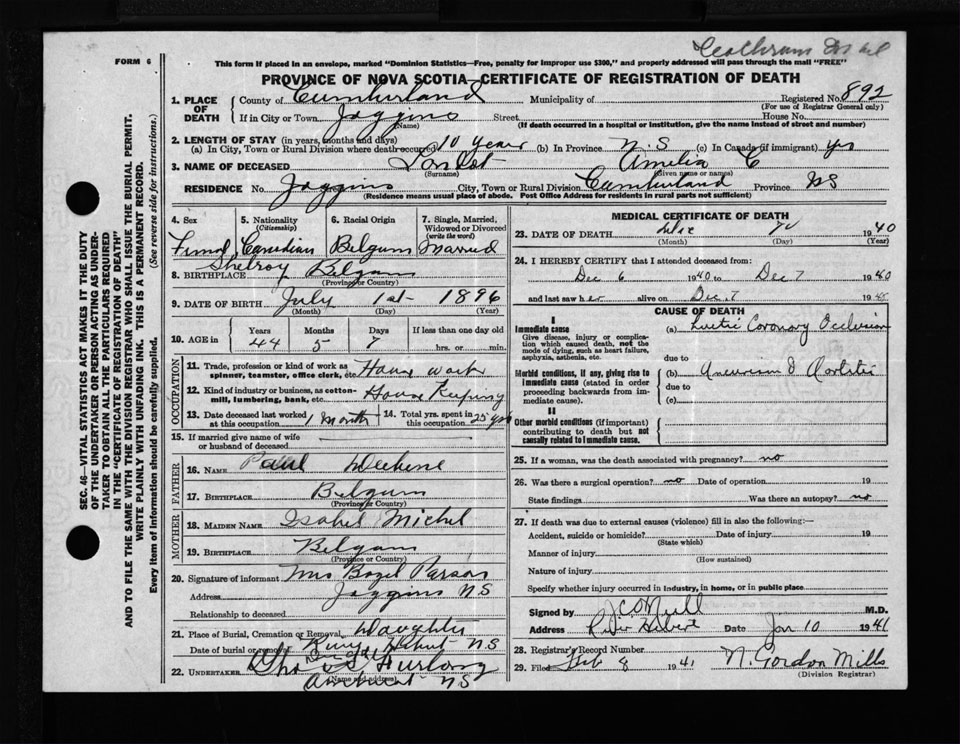 FORM 6
This form if placed in an envelope, marked "Dominion Statistics—Free, penalty for improper use $300," and properly addressed will pass through the mail "FREE"
PROVINCE OF NOVA SCOTIA—CERTIFICATE OF REGISTRATION OF DEATH
1. PLACE OF DEATH County of Cumberland Municipality of Registered No. 892
(For use of Registrar General only)
If in City or Town Joggins Street House No.
(Name) (If death occurred in a hospital or institution, give the name instead of street and number)
2. LENGTH OF STAY (in years, months and days)
(a) In City, Town or Rural Division where death occurred 10 years (b) In Province N.S (c) In Canada (if immigrant) yrs
3. NAME OF DECEASED Amelia C
(Surname) (Given name or names)
RESIDENCE No. Joggins City, Town or Rural Division Cumberland Province NS
(Residence means usual place of abode. Post Office Address for residents in rural parts not sufficient)
4. Sex 5. Nationality (Citizenship) 6. Racial Origin 7. Single, Married, Widowed or Divorced (write the word)
Canadian Belgum Married
8. BIRTHPLACE Belgum
(Province or Country)
9. DATE OF BIRTH July 1st 1896
(Month) (Day) (Year)
10. AGE in Years Months Days If less than one day old
44 5 7 hrs. or min.
OCCUPATION
11. Trade, profession or kind of work as spinner, teamster, office clerk, etc. House work
12. Kind of industry or business, as cotton-mill, lumbering, bank, etc. House Keeping
13. Date deceased last worked at this occupation 1 Month 14. Total yrs. spent in this occupation 25 yrs
15. If married give name of wife or husband of deceased
FATHER
16. NAME Paul
17. BIRTHPLACE Belgum
(Province or Country)
MOTHER
18. MAIDEN NAME Isabel Michel
19. BIRTHPLACE Belgum
(Province or Country)
20. Signature of informant Mrs Bazel Parson
Address Joggins NS
Relationship to deceased
Daughter
21. Place of Burial, Cremation or Removal
Date of burial or removal River Hebert NS
22. UNDERTAKER Furlong
(Name and address)
Amherst NS
MEDICAL CERTIFICATE OF DEATH
23. DATE OF DEATH Dec 7 1940
(Month) (Day) (Year)
24. I HEREBY CERTIFY that I attended deceased from:
Dec 6 1940 to Dec 7 1940
and last saw her alive on Dec. 7 1940
CAUSE OF DEATH
I
Immediate cause (a) Luetic Coronary Occlusion
Give disease, injury or complication which caused death, not the mode of dying, such as heart failure, asphyxia, asthenia, etc.
due to
Morbid conditions, if any, giving rise to immediate cause (stated in order proceeding backwards from immediate cause). (b) Aneurism & Aortitis
due to
(c)
II
Other morbid conditions (if important) contributing to death but not causally related to immediate cause.
25. If a woman, was the death associated with pregnancy? no
26. Was there a surgical operation? no Date of operation 19
State findings Was there an autopsy? no
27. If death was due to external causes (violence) fill in also the following:—
Accident, suicide or homicide? Date of injury 19
(State which)
Manner of injury
(How sustained)
Nature of injury
Specify whether injury occurred in industry, in home, or in public place
Signed by M.D.
Address River Hebert Date Jan 10 1941
28. Registrar's Record Number
29. Filed Feb 8 1941 N. Gordon Mills
(Division Registrar)
SEC. 46—VITAL STATISTICS ACT MAKES IT THE DUTY
OF THE UNDERTAKER OR PERSON ACTING AS UNDER-
TAKER TO OBTAIN ALL THE PARTICULARS REQUIRED
IN THE "CERTIFICATE OF REGISTRATION OF DEATH"
AND TO FILE THE SAME WITH THE DIVISION REGISTRAR WHO SHALL ISSUE THE BURIAL PERMIT.
WRITE PLAINLY WITH UNFADING INK. THIS IS A PERMANENT RECORD.
Every item of Information should be carefully supplied. (See reverse side for instructions.)